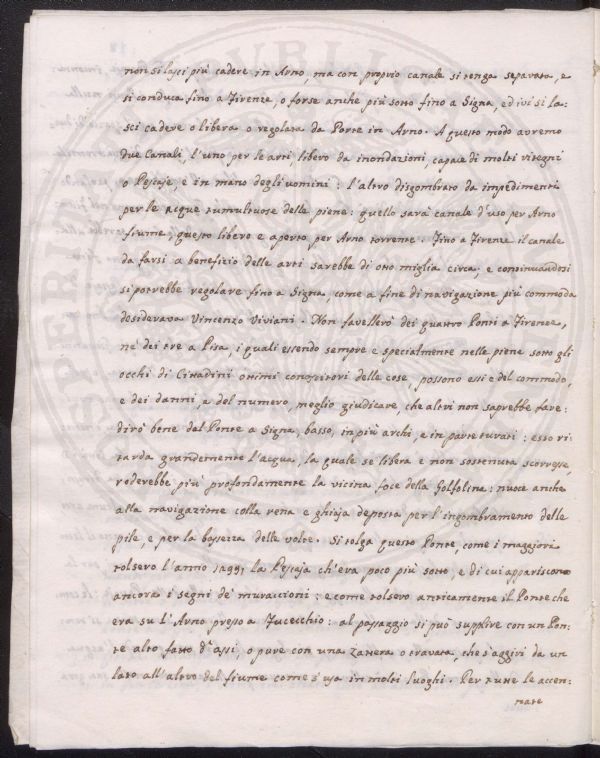 non si lasci più cadere in Arno, ma con proprio canale si tenga separato, e
si conduca fino a Firenze, o forse anche più sotto fino a Signa, ed ivi si la-
sci cadere o libera o regolata da Porte in Arno. A questo modo avremo
due Canali, l'uno per le arti, libero da inondazioni, capace di molti ritegni
o Pescaje, e in mano degli uomini: l'altro disgombrato da impedimenti
per le acque tumultuose delle piene: quello sarà canale d'uso per Arno
fiume, questo libero e aperto per Arno torrente. Fino a Firenze il canale
da farsi a benefizio delle arti sarebbe di otto miglia circa: e continuandosi
si potrebbe regolare fino a Signa, come a fine di navigazione più commoda
desiderava Vincenzo Viviani. Non favellerò dei quattro Ponti a Firenze,
nè dei tre a Pisa, i quali essendo sempre e specialmente nelle piene sotto gli
occhi di Cittadini ottimi conoscitori delle cose, possono essi e del commodo,
e dei danni, e del numero, meglio giudicare, che altri non saprebbe fare:
dirò bene del Ponte a Signa, basso, in più archi, e in parte turati: esso ri
tarda grandemente l'acqua, la quale se libera e non sostenuta scorresse,
roderebbe più profondamente la vicina foce della Golfolina: nuoce anche
alla navigazione colla rena e ghiaja deposta per l'ingombramento delle
pile, e per la bassezza delle volte. Si tolga questo Ponte, come i maggiori
tolsero l'anno 1499 la Pescaja ch'era poco più sotto, e di cui appariscono
ancora i segni de' muraccioni: e come tolsero anticamente il Ponte che
era su l'Arno presso a Fucecchio: al passaggio si può supplire con un Pon-
te alto fatto d'assi, o pure con una zattera o travata, che s'aggiri da un
lato all'altro del fiume come s'usa in molti luoghi. Per tutte le accen-
nate